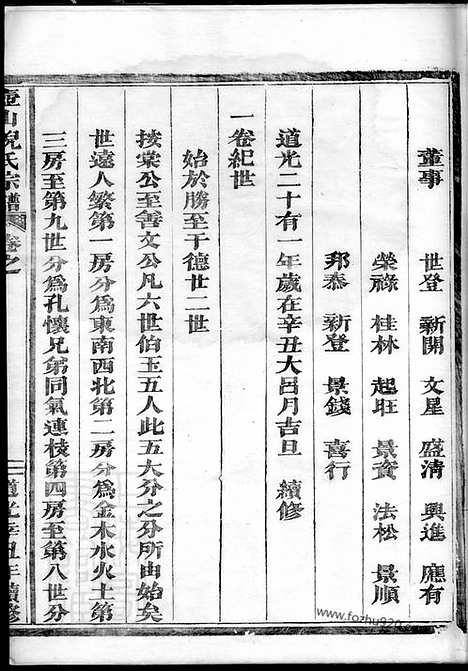 董事　世登　新開　文星　盛清　興進　應有
榮祿　桂林　起旺　景資　法松　景順
邦泰　新登　景錢　喜行
道光二十有一年歲在辛丑大呂月吉旦　續修
一卷紀世
始於勝至于德世二世
按棠公至善文公凡六世伯玉五人此五大分之分所由始矣
世遠人繁第一房分為東南西北第二房分為金木水火土第
三房至第九世分為孔懷兄弟同氣連枝第四房至第八世分
壺山倪氏宗譜　卷之一　道光辛丑年續修
www.fozhu920.com